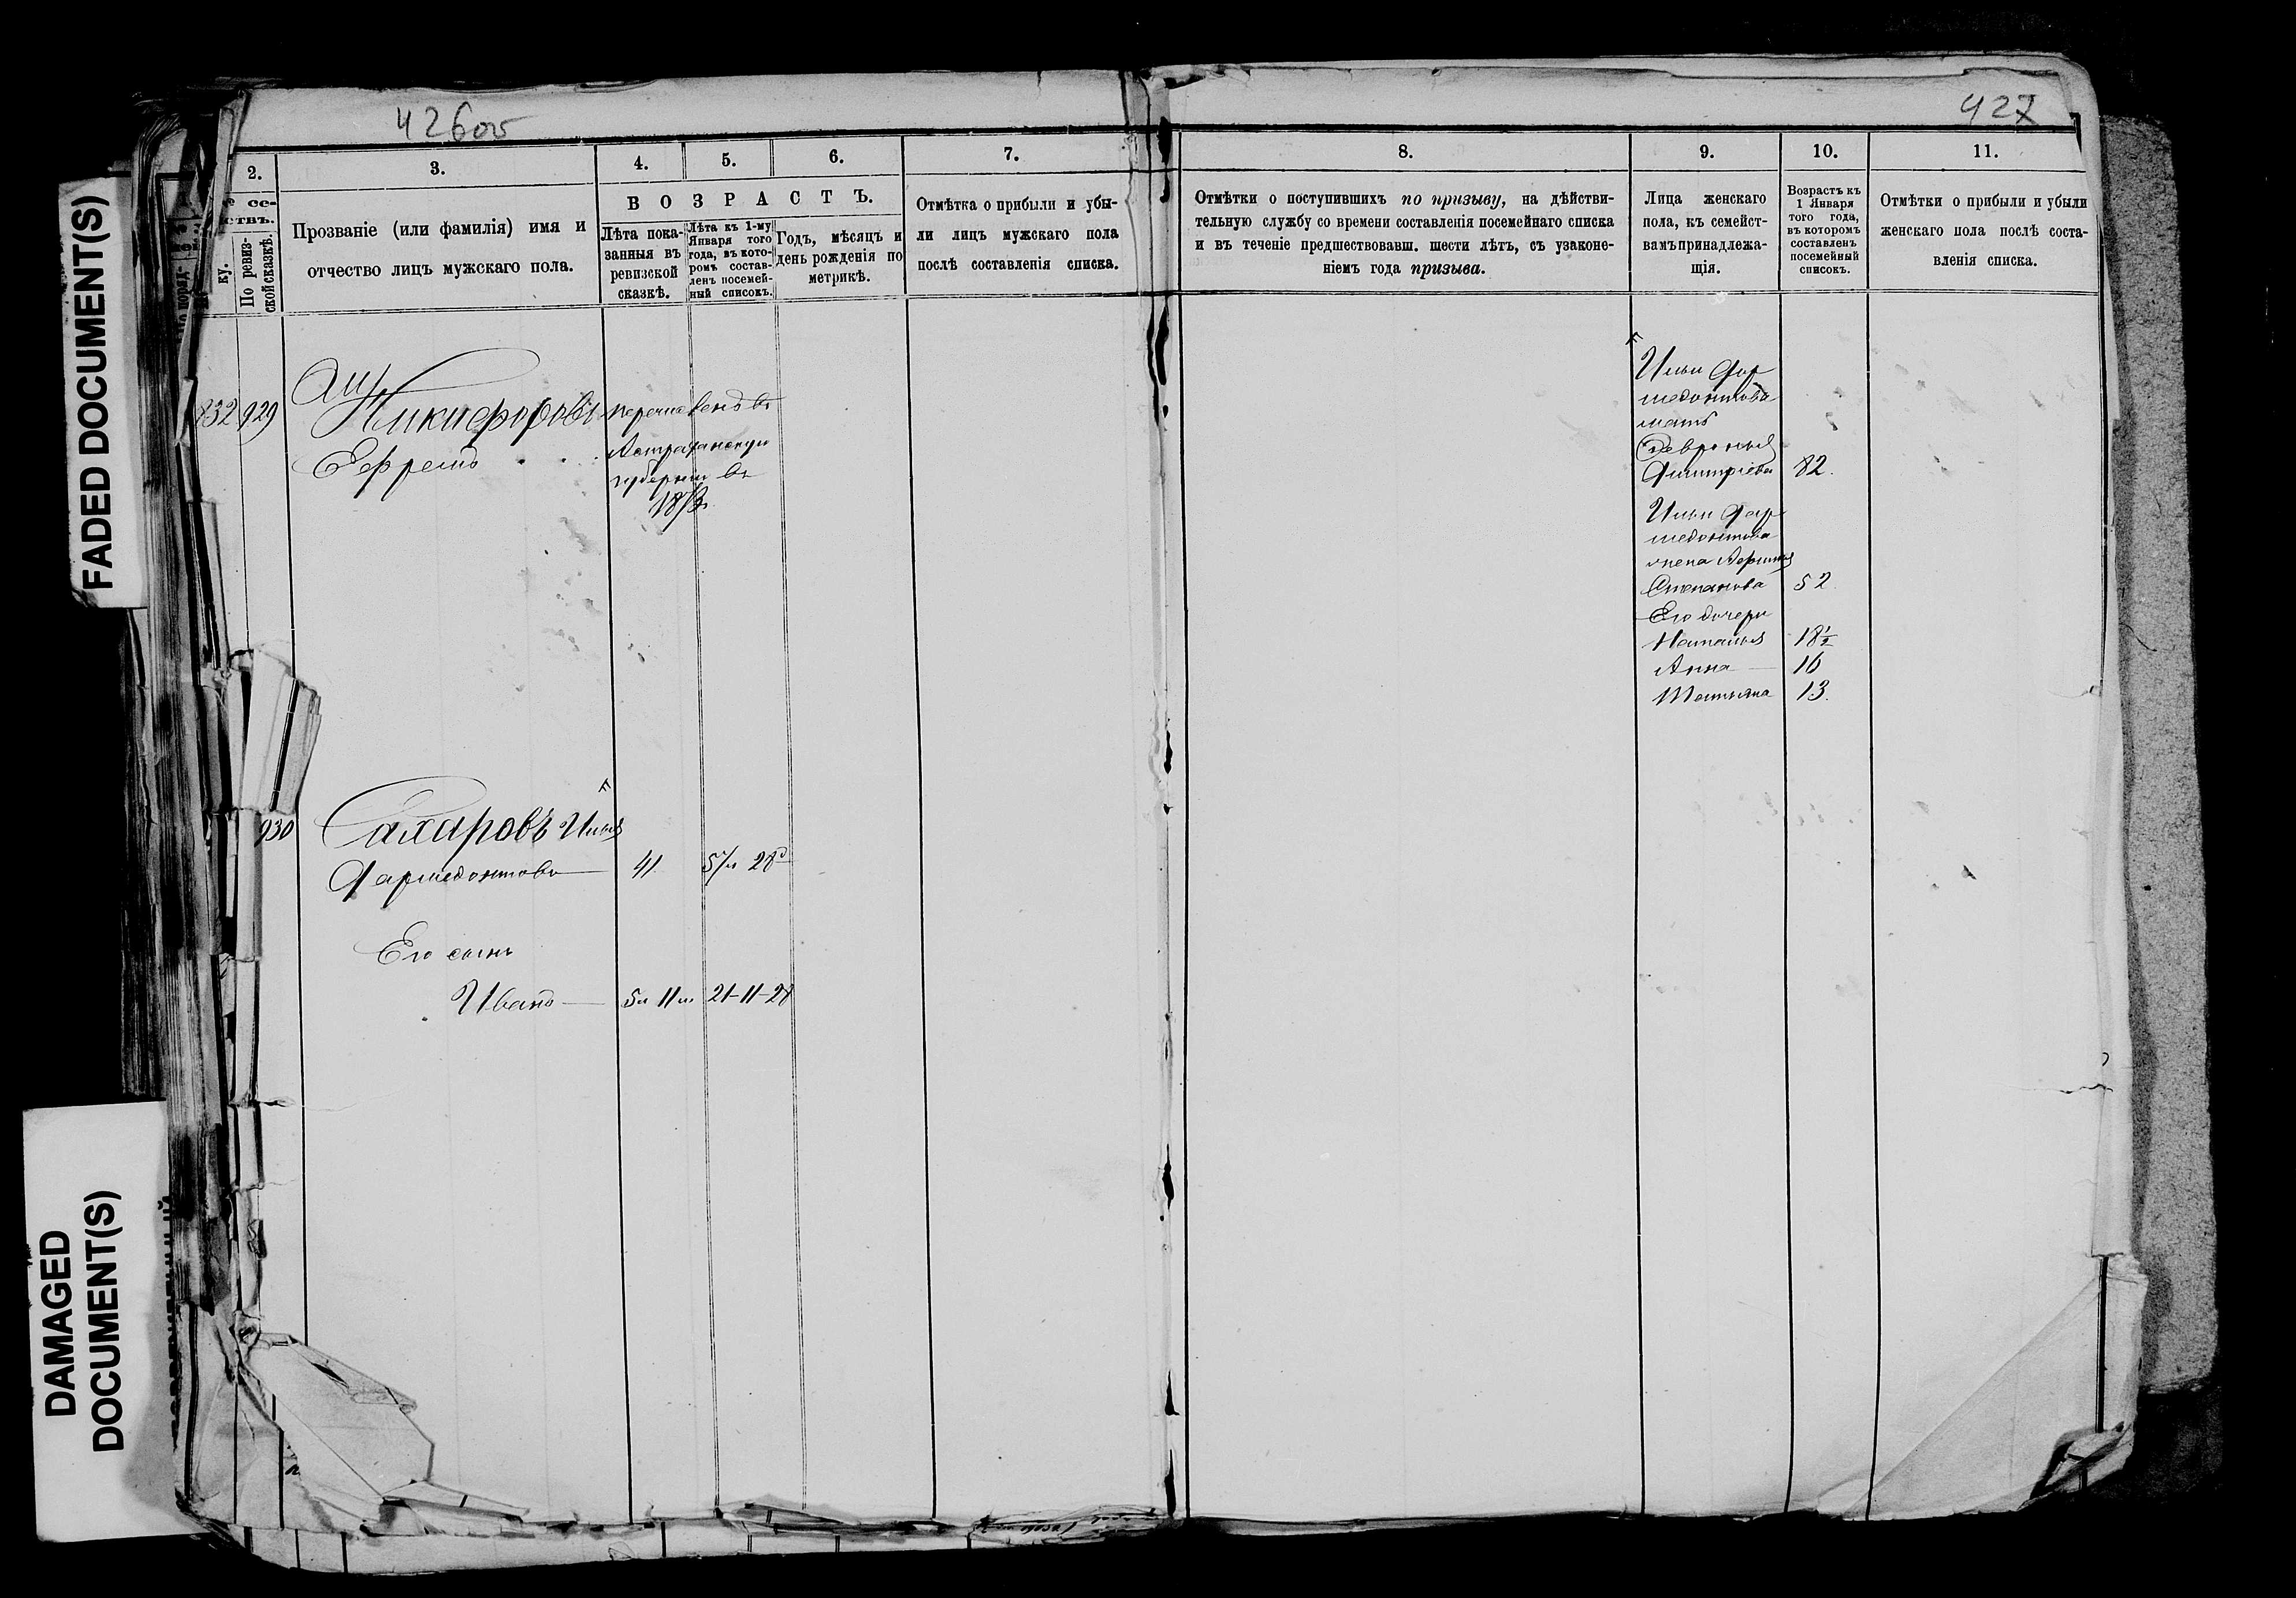 426об
427
FADED DOCUMENT(S)
DAMAGED
DOCUMENT(S)
2.
3.
4.
5.
6.
7.
8.
9.
10.
11.
По ревиз-
ской сказкѣ.
Прозваніе (или фамилія) имя и
отчество лицъ мужскаго пола.
ВОЗРАСТЪ.
Лѣта пока-
занныя въ
ревизской
сказкѣ.
Лѣта къ 1-му
Января того
года, въ кото-
ромъ состав-
ленъ посемей-
ный списокъ.
Годъ, мѣсяцъ и
день рожденія по
метрикѣ.
Отмѣтка о прибыли и убы-
ли лицъ мужскаго пола
послѣ составленія списка.
Отмѣтки о поступившихъ по призыву, на дѣйстви-
тельную службу со времени составленія посемейнаго списка
и въ теченіе предшествовавш. шести лѣтъ, съ узаконе-
ніемъ года призыва.
Лица женскаго
пола, къ семейст-
вамъ принадлежа-
щія.
Возрастъ къ
1 Января
того года,
въ которомъ
составленъ
посемейный
списокъ.
Отмѣтки о прибыли и убыли
женскаго пола послѣ соста-
вленія списка.
832 929
Никифоровъ
Ефремъ
перечисленъ въ
Астраханскую
губернию въ
930 Сахаровъ Илья
Фармедонтовъ 41 57 л 28 д
Его сынъ
Иванъ 5 л 11 м 21-11-28
Ильи Фар
медонтова
мать
Февронья
Димитріева 82.
Ильи Фар
медонтова
жена
Степанова 52.
Его дочери
Наталья 18½
Анна 16
Татьяна 13.